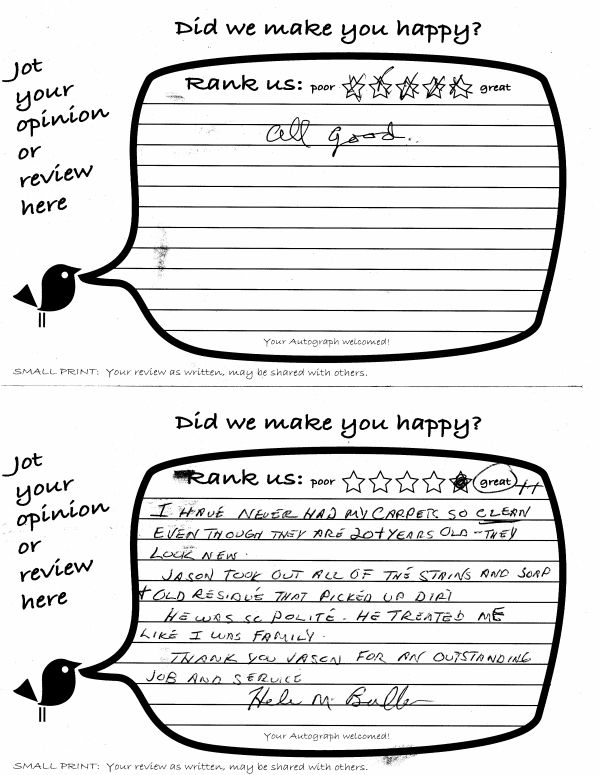 Did we make you happy?
Jot
your
opinion
or
review
here
Rank us: poor great
all good.
Your Autograph welcomed!
SMALL PRINT: Your review as written, may be shared with others.
Did we make you happy?
Jot
your
opinion
or
review
here
Rank us: poor great ++
I HAVE NEVER HAD MY CARPETS SO CLEAN
EVEN THOUGH THEY ARE 20+ YEARS OLD - THEY
LOOK NEW.
JASON TOOK OUT ALL OF THE STAINS AND SOAP
+ OLD RESIDUE THAT PICKED UP DIRT
HE WAS SO POLITE. HE TREATED ME
LIKE I WAS FAMILY.
THANK YOU JASON FOR AN OUTSTANDING
JOB AND SERVICE
Your Autograph welcomed!
SMALL PRINT: Your review as written, may be shared with others.